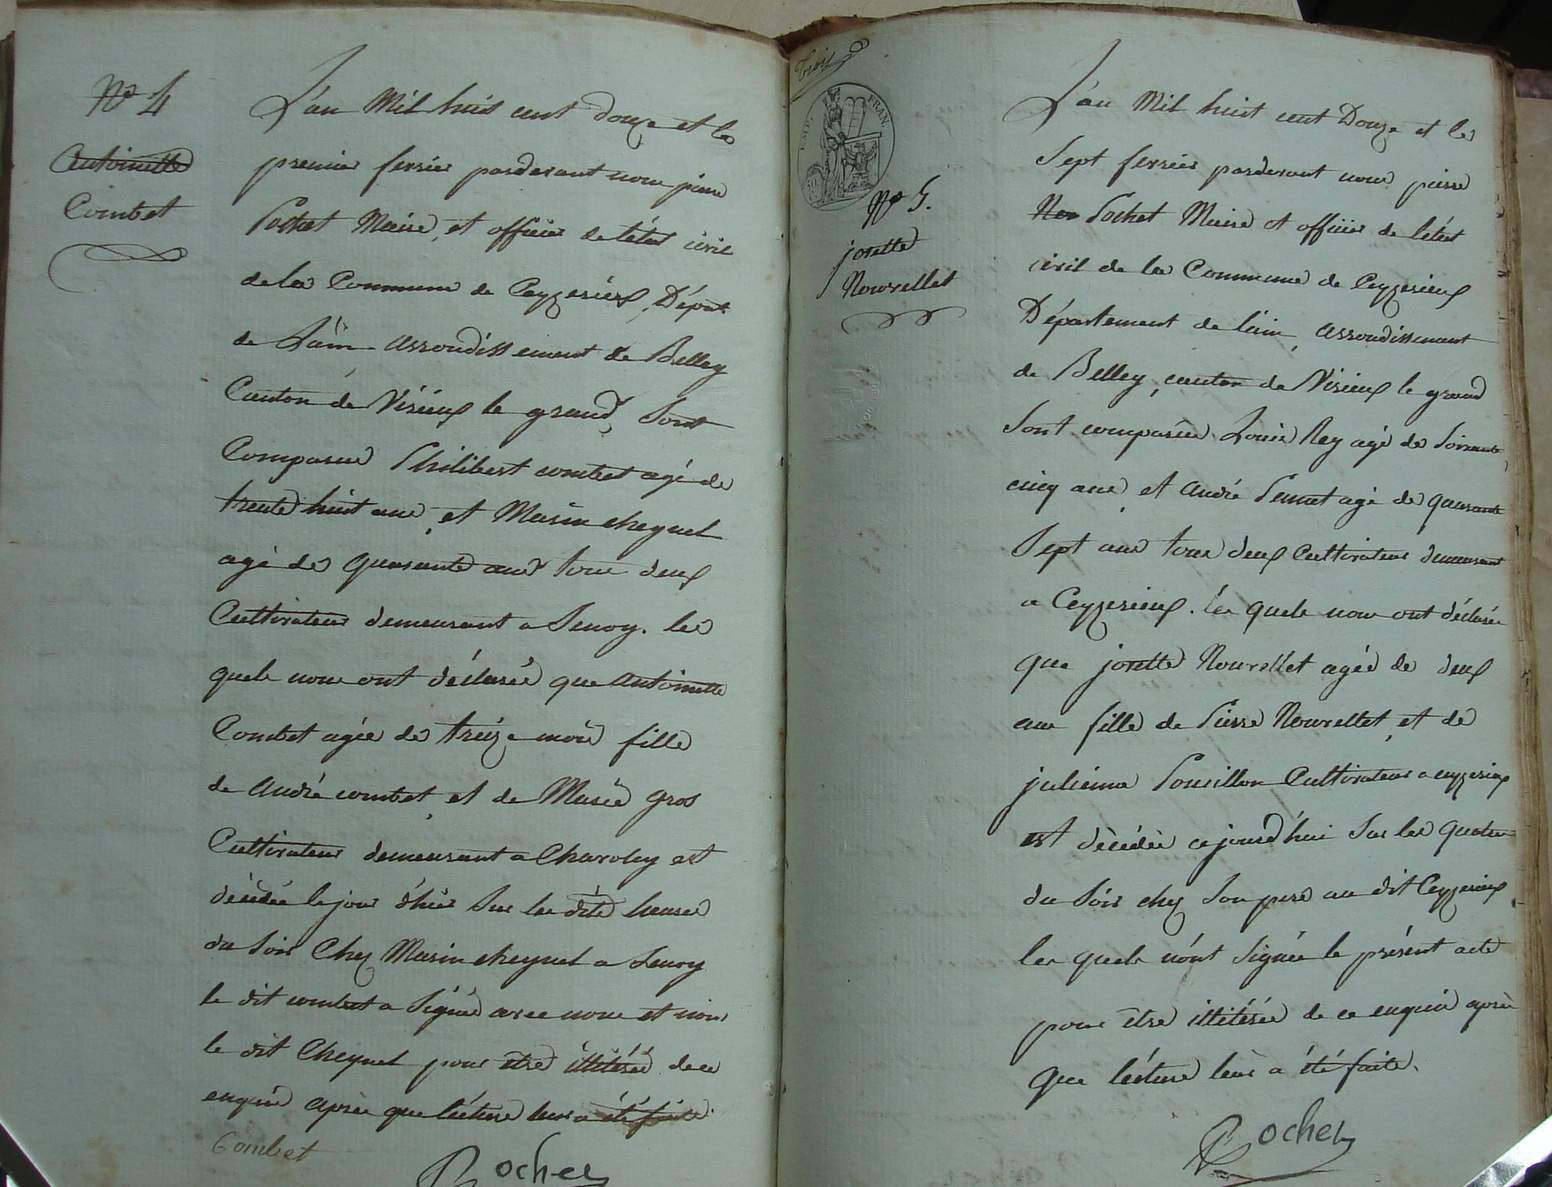 N° 4
Antoinette
Combet
L'an Mil huit cent douze et le
premier fevrier pardevant nous pierre
Pochet Maire, et officier de l'état civil
de la Commune de Ceyzerieux, Dépt
de L'ain arrondissement de Belley
Canton de Virieux le grand, Sont
Comparus Philibert combet agé de
trente huit ans, et Marin cheynel
agé de quarante ans tous deux
Cultivateurs demeurant a Senoy. les
quels nous ont déclarés que antoinette
Combet agée de treize mois fille
de André combet, et de Marie gros
Cultivateurs demeurant a Charoley est
décédée le jour d'hier Sur les dite heures
du Soir Chez Marin cheynel a Senoy
le dit combet a Signé avec nous et non
le dit Cheynel pour être illitéré de ce
enquis après que lécture leur a été faite.
Combet
Pochet
trois
EMP. FRAN.
N° 5.
josette
Nourellet
L'an Mil huit cent Douze et le
Sept fevrier pardevant nous pierre
Pochet Maire et officier de l'état
civil de la Commune de Ceyzerieux
Département de l'ain, arrondissement
de Belley, canton de Virieux le grand
Sont comparus Louis Rey agé de Soixante
cinq ans, et André Pennet agé de quarante
Sept ans tous deux Cultivateurs demeurant
a Ceyzerieux. les quels nous ont déclarés
que josette Nourellet agée de deux
ans fille de Pierre Nourellet, et de
julienne Pousillon Cultivateurs a ceyzerieux
est décédée cejourd'hui Sur les quatre
du Soir chez Son pere au dit Ceyzerieux
les quels n'ont Signés le présent acte
pour être illitérés de ce enquis après
que lécture leur a été faite.
Pochet